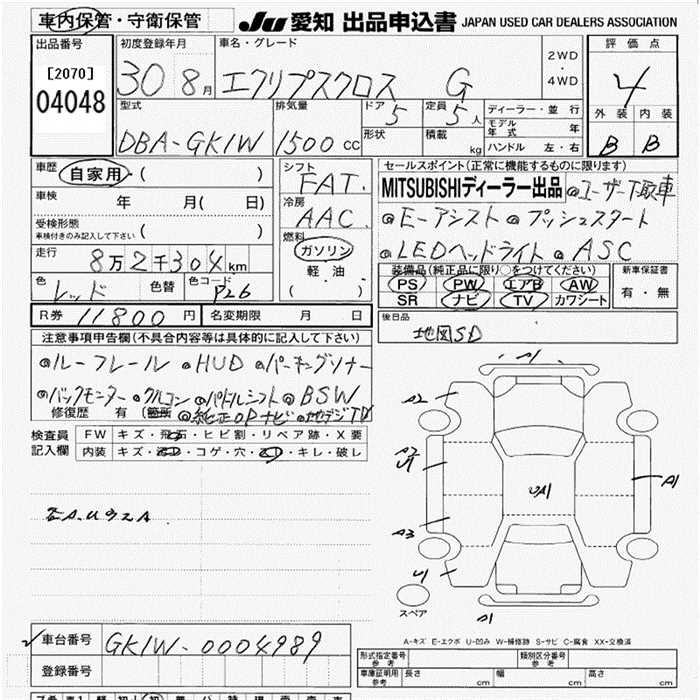 車内保管・守衛保管
JU 愛知 出品申込書 JAPAN USED CAR DEALERS ASSOCIATION
出品番号 初度登録年月 車名・グレード 2WD・4WD 評価点
[2070]
04048
30 8月 エクリプスクロス G 4
型式 排気量 ドア 5 定員 5人 ディーラー・並行 外装 内装
DBA-GK1W 1500cc 形状 積載 kg モデル年式 年 B B
ハンドル 左・右
車歴 自家用・( ) シフト FAT. セールスポイント(正常に機能するものに限ります)
車検 年 月( 日) 冷房 AAC MITSUBISHIディーラー出品 ◎ユーザー下取車
受検形態 車検付きのみ記入して下さい ( ) 燃料 ◎E-アシスト ◎プッシュスタート
走行 8万2千304km ガソリン ◎LEDヘッドライト ◎ASC
軽油・( )
色 レッド 色替 色コード P26 装備品(純正品に限り○をつけてください) 新車保証書
PS PW エアB AW 有・無
SR ナビ TV カワシート
R券 11800円 名変期限 月 日 後日品
地図SD
注意事項申告欄(不具合内容等は具体的に記入して下さい)
◎ルーフレール ◎HUD ◎パーキングソナー
◎バックモニター ◎クルコン ◎パドルシフト ◎BSW
修復歴 有(箇所 ◎純正OPナビ ◎地デジTV
検査員記入欄 FW キズ・飛石・ヒビ割・リペア跡・X要
内装 キズ・コゲ・穴・キレ・破レ
A1
A2
U1
A1
UA1
A3
U1
スペア
A1
A-キズ E-エクボ U-凹み W-補修跡 S-サビ C-腐食 XX-交換済
車台番号 GK1W-0004989
登録番号
形式指定番号 参考 類別区分番号 参考
車庫証明用 参考 長さ cm 幅 cm 高さ cm